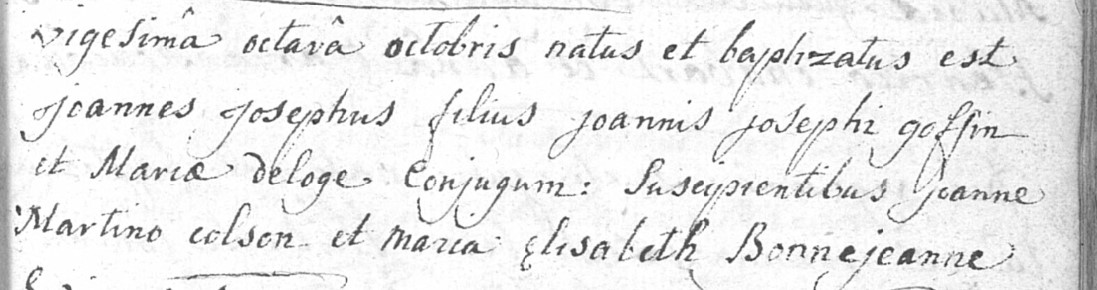 vigesimâ octavâ octobris natus et baptizatus est
joannes josephus filius joannis josephi goffin
et Mariæ deloge Conjugum: Suscipientibus joanne
Martino colson et maria Elisabeth Bonnejeanne